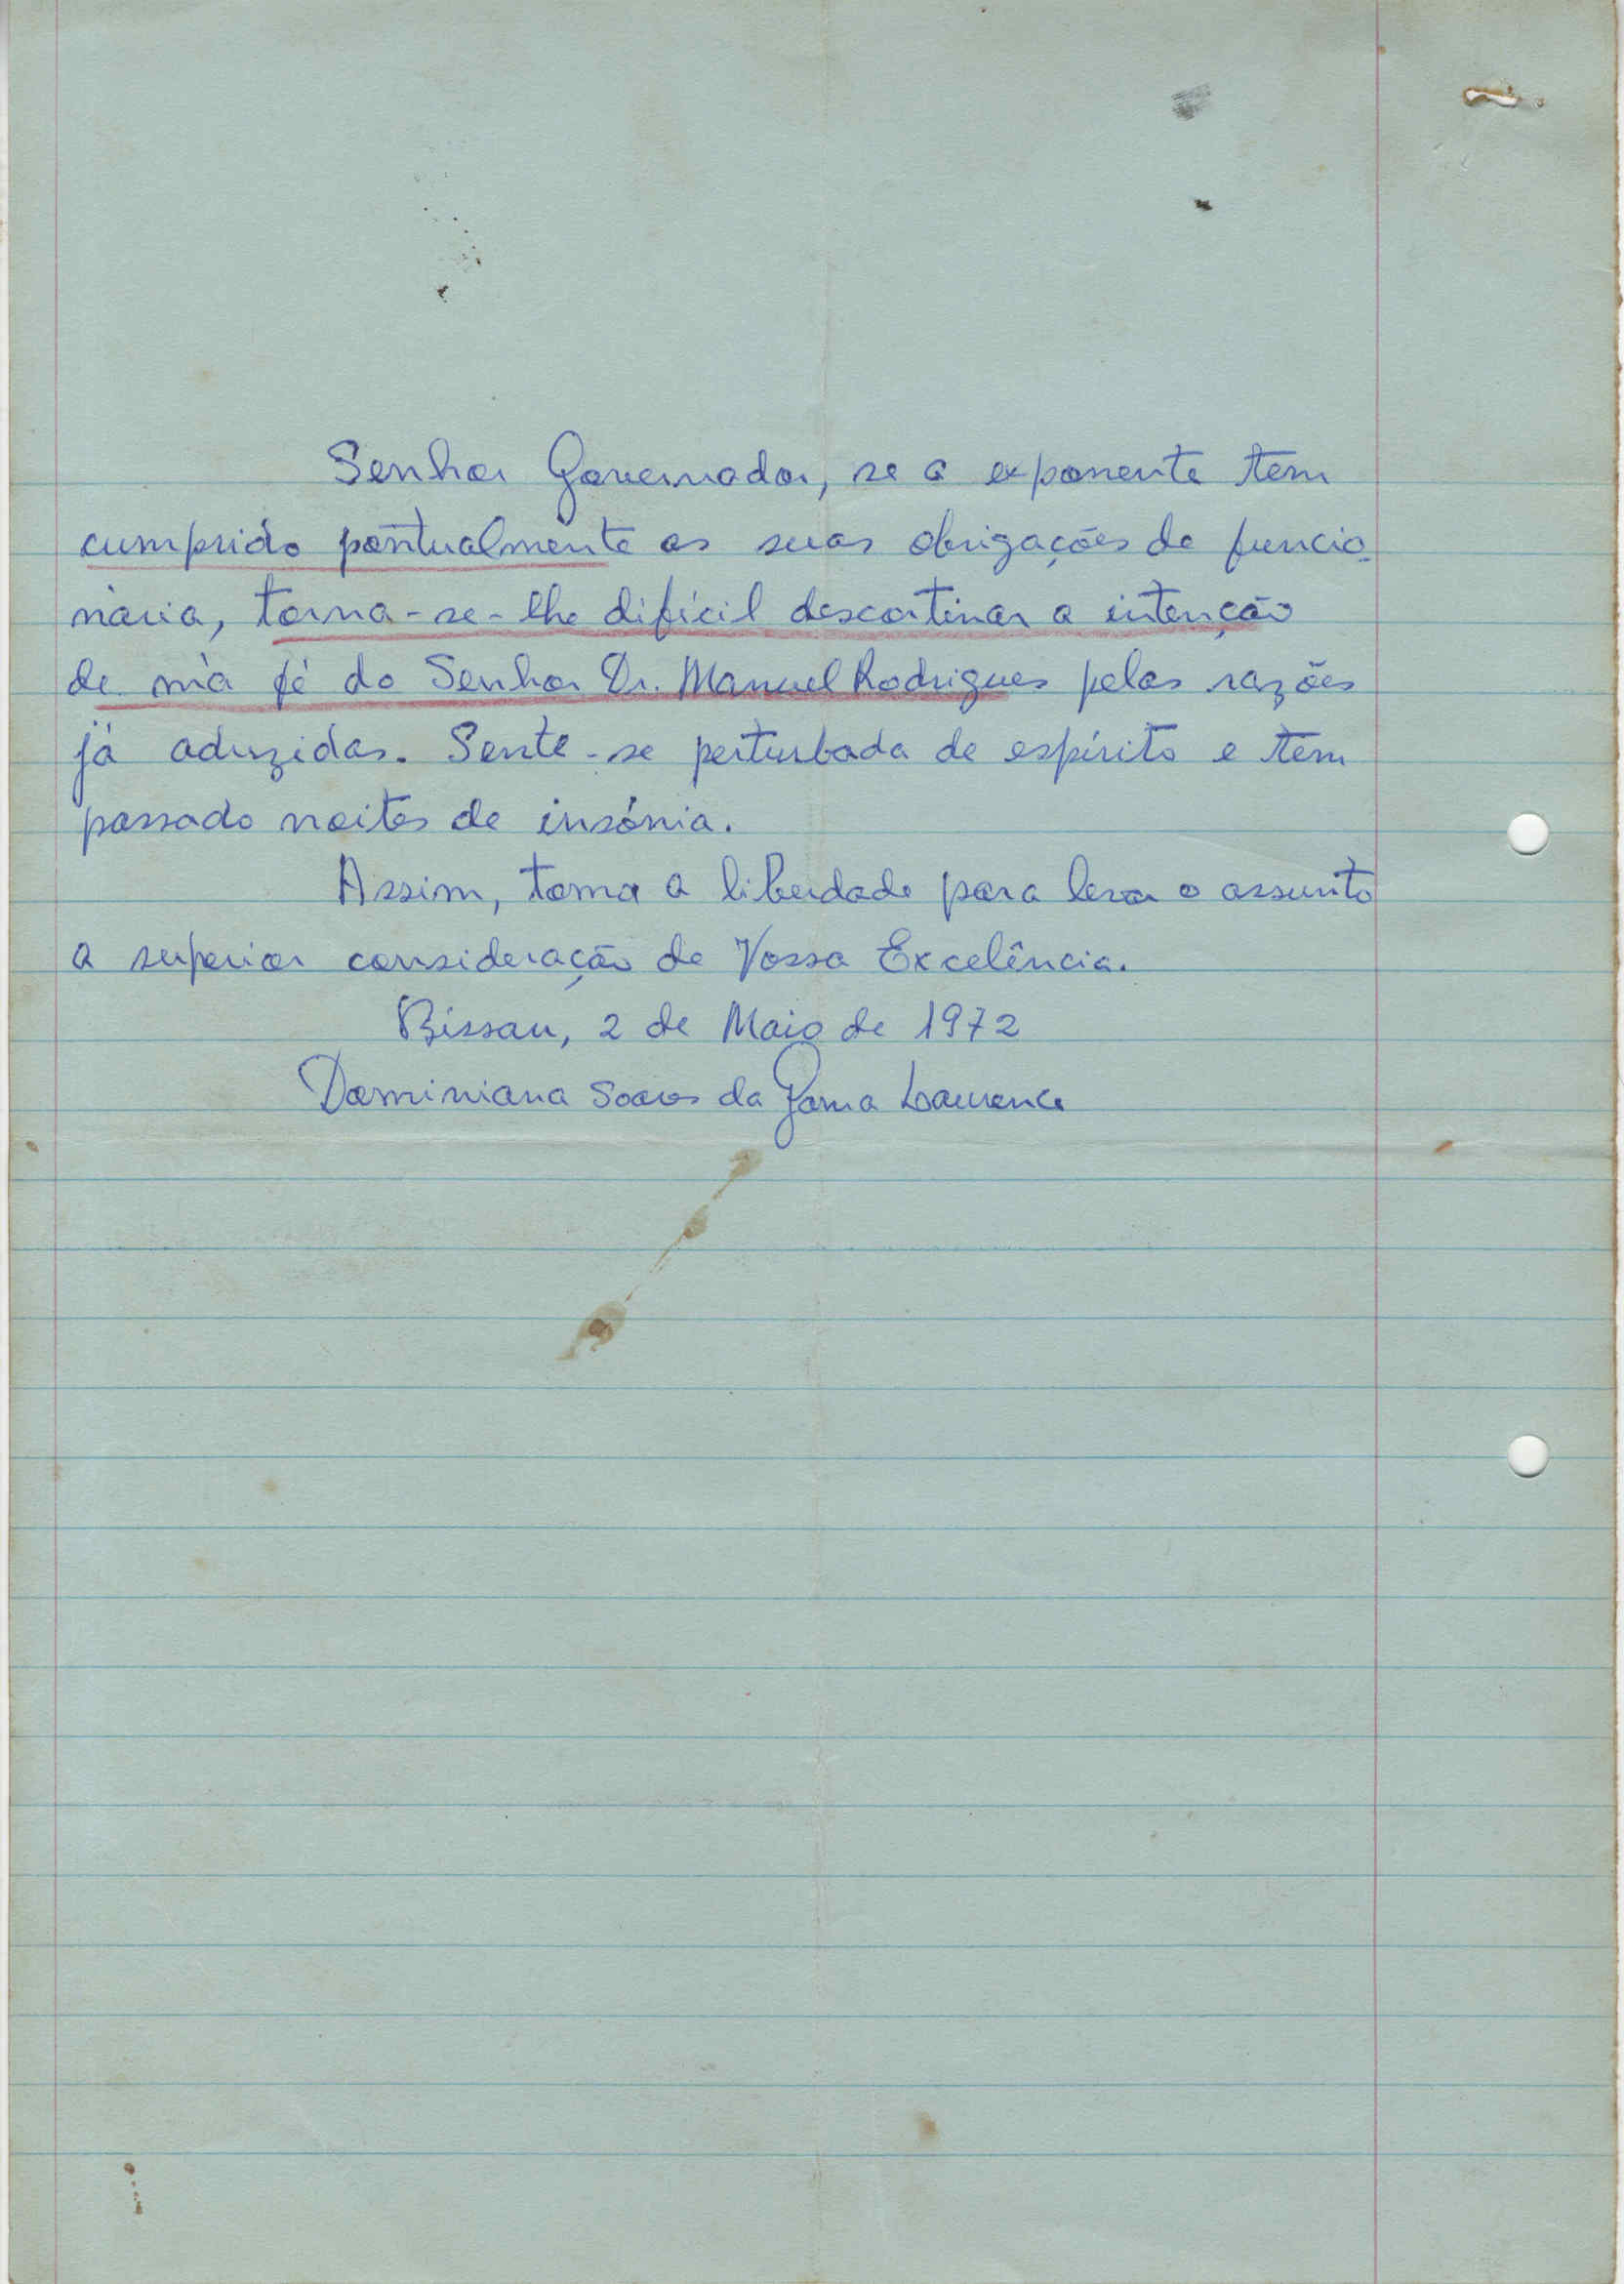 Senhor Governador, se a exponente tem
cumprido pontualmente as suas obrigações de funcio-
nária, torna-se-lhe difícil descortinar a intenção
de má fé do Senhor Dr. Manuel Rodrigues pelas razões
já aduzidas. Sente-se perturbada de espírito e tem
passado noites de insónia.
Assim, toma a liberdade para levar o assunto
a superior consideração de Vossa Excelência.
Bissau, 2 de Maio de 1972
Dominiana Soares da Gama Lourence